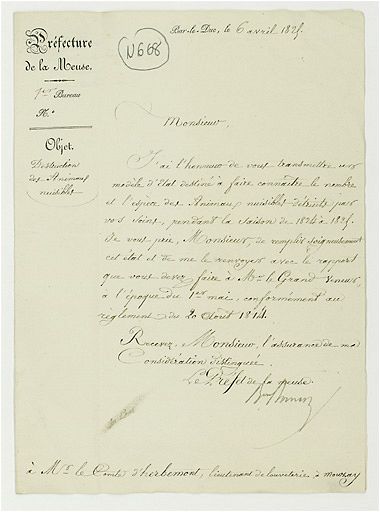 Préfecture
de la Meuse.
1er Bureau
N.°
Objet.
Destruction
des Animaux
nuisibles
N668
Bar-le-Duc, le 6 avril 1825.
Monsieur,
J'ai l'honneur de vous transmettre un
modèle d'état destiné à faire connaître le nombre
et l'espèce des Animaux nuisibles détruits par
vos soins, pendant la saison de 1824 à 1825.
Je vous prie, Monsieur, de remplir soigneusement
cet état et de me le renvoyer avec le rapport
que vous devez faire à Mr. le Grand Veneur,
à l'époque du 1er mai, conformément au
règlement du 20 Août 1814.
Recevez, Monsieur, l'assurance de ma
Considération distinguée.
Le Préfet de la meuse.
à Mr. le Comte d'herbemont, lieutenant de louveterie à mouzay